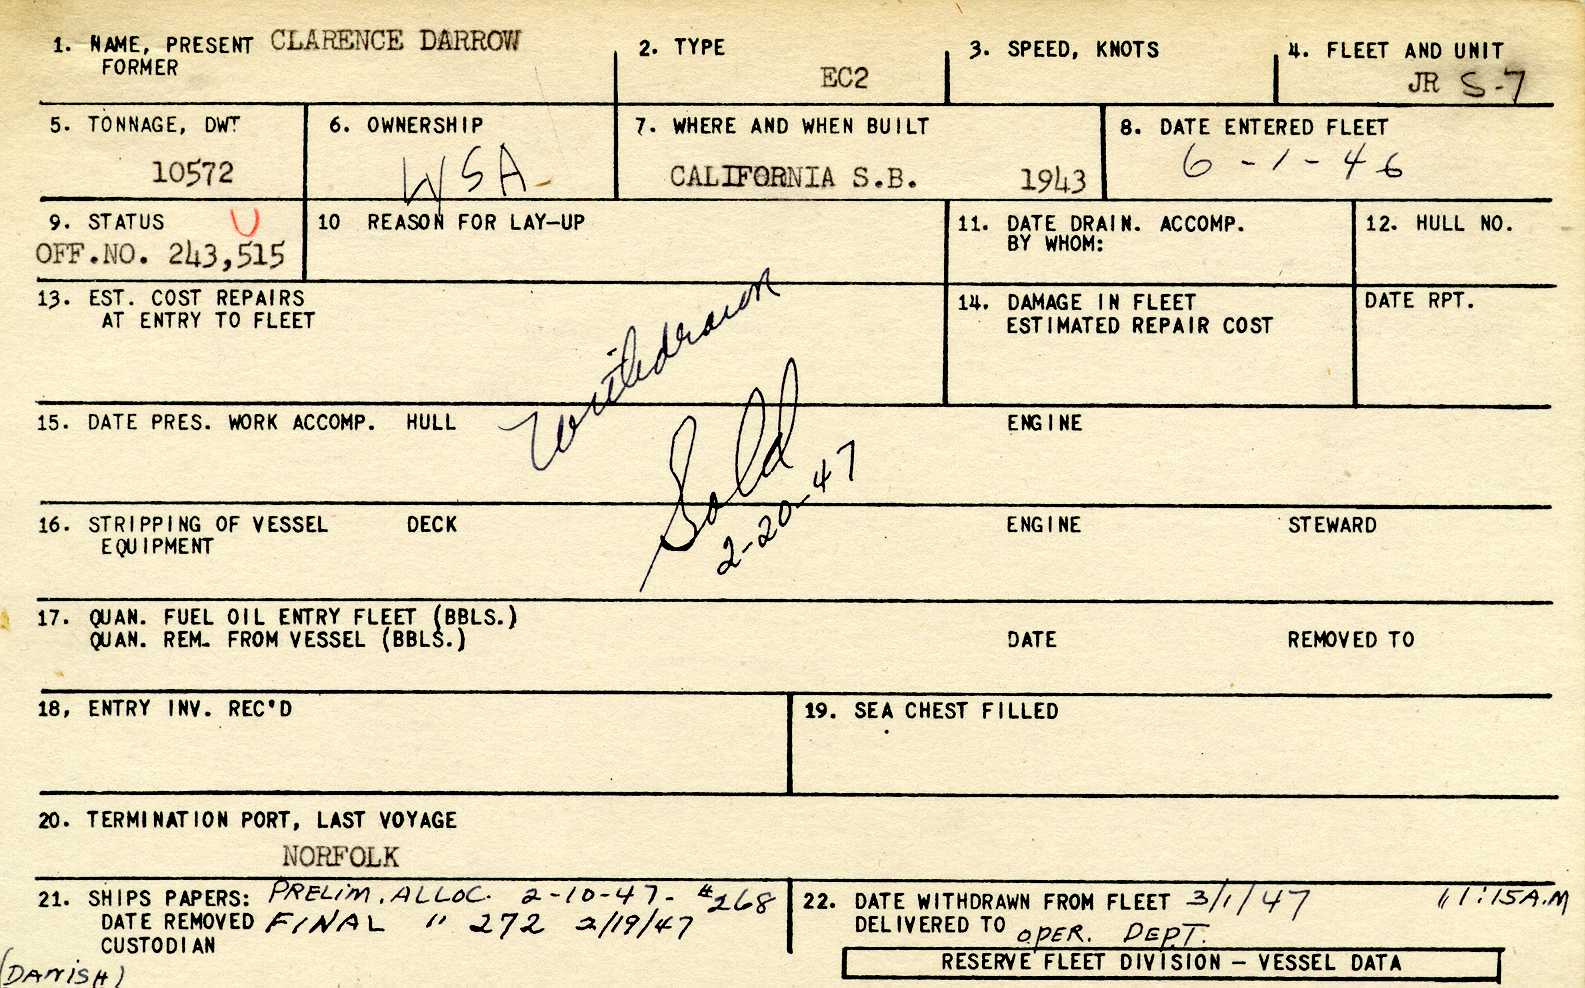 1. NAME, PRESENT CLARENCE DARROW
FORMER
2. TYPE
EC2
3. SPEED, KNOTS
4. FLEET AND UNIT
JR S-7
5. TONNAGE, DWT
10572
6. OWNERSHIP
WSA
7. WHERE AND WHEN BUILT
CALIFORNIA S.B. 1943
8. DATE ENTERED FLEET
6-1-46
9. STATUS U
OFF.NO. 243,515
10 REASON FOR LAY-UP
11. DATE DRAIN. ACCOMP.
BY WHOM:
12. HULL NO.
13. EST. COST REPAIRS
AT ENTRY TO FLEET
14. DAMAGE IN FLEET
ESTIMATED REPAIR COST
DATE RPT.
Withdrawn
Sold
2-20-47
15. DATE PRES. WORK ACCOMP. HULL ENGINE
16. STRIPPING OF VESSEL DECK ENGINE STEWARD
EQUIPMENT
17. QUAN. FUEL OIL ENTRY FLEET (BBLS.)
QUAN. REM. FROM VESSEL (BBLS.) DATE REMOVED TO
18, ENTRY INV. REC'D
19. SEA CHEST FILLED
20. TERMINATION PORT, LAST VOYAGE
NORFOLK
21. SHIPS PAPERS: PRELIM. ALLOC. 2-10-47- #268
DATE REMOVED FINAL " 272 2/19/47
CUSTODIAN
(DANISH)
22. DATE WITHDRAWN FROM FLEET 3/1/47 11:15A.M
DELIVERED TO OPER. DEPT.
RESERVE FLEET DIVISION - VESSEL DATA